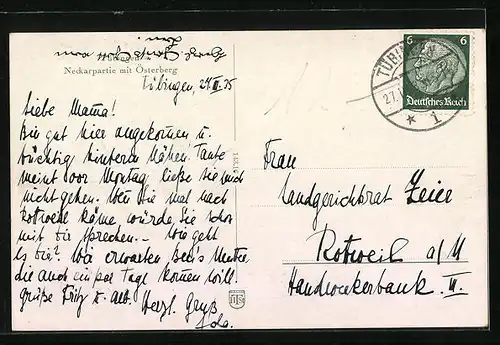 Tübingen
Neckarpartie mit Österberg
Tübingen, 27.II.35
Liebe Mama!
Bin gut hier angekommen u.
tüchtig hinterm Nähen. Tante
meint vor Montag ließe sie mich
nicht gehen. Wenn sie mal nach
Rottweil käme würde, Sie schon
mit dir sprechen. - Wie geht
es dir? Wir erwarten Mutter
die auch ein paar Tage kommen will.
Grüße Fritz u.
Herzl. Gruß
Frau
Landgerichtsrat
Rotweil a/N
Handwerkerbank II.
TÜBINGEN
27.
* 1
6 6
Deutsches Reich